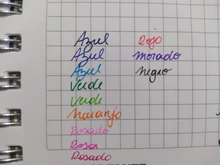 Azul
Azul
Azul
Verde
Verde
Naranjo
Rosado
Rosa
Rosado
Rojo
Morado
Negro